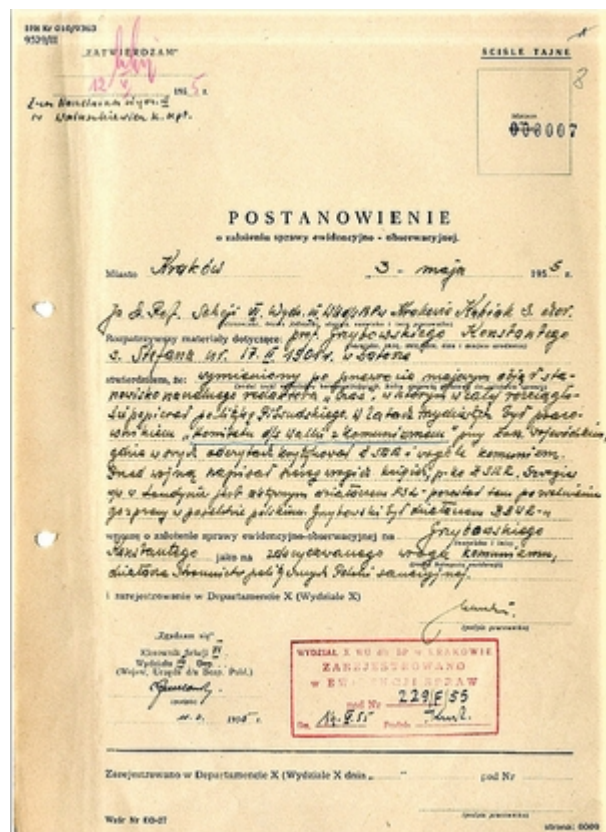 IPN Kr 010/9363
9529/II
„ZATWIERDZAM”
ŚCIŚLE TAJNE
12 V 1955 r.
8
000007
POSTANOWIENIE
o założeniu sprawy ewidencyjno - obserwacyjnej.
Miasto Kraków „3 - maja 1955 r.
Ja S. Ref. Sekcji VI Wydz. III WUdsBPw Krakowie Kubiak S. chor.
Rozpatrzywszy materiały dotyczące: prof. Grzybowskiego Konstantego
s. Stefana ur. 17. 1901r. w
stwierdziłem, że: wymieniony po przewrocie majowym objął sta-
nowisko naczelnego redaktora „Czas”, w którym w całej rozciągło-
ści popierał politykę Piłsudskiego. W latach trzydziestych był praco-
wnikiem „Komitetu d/s walki z komunizmem” przy
gdzie w swych odczytach krytykował ZSRR i w ogóle komunizm.
Przed wojną napisał szereg wrogich książek p-ko ZSRR.
w Londynie jest aktywnym działaczem PSL - pozostał tam po zwolnieniu
go z pracy w poselstwie polskim. Grzybowski był działaczem BBWR-u
wnoszę o założenie sprawy ewidencyjno-obserwacyjnej na Grzybowskiego
Konstantego jako na zdecydowanego wroga komunizmu,
działacza stronnictw politycznych Polski sanacyjnej.
i zarejestrowanie w Departamencie X (Wydziale X)
(podpis pracownika)
„Zgadzam się”
Kierownik Sekcji VI
Wydziału III Dep.
(Wojew. Urzędu d/s Bezp. Publ.)
1955 r.
WYDZIAŁ X WU ds BP w KRAKOWIE
ZAREJESTROWANO
w EWIDENCJI SPRAW
pod Nr 229/E/55
dn. 14.V.55 Podpis
Zarejestrowano w Departamencie X (Wydziale X dnia „ ” pod Nr
(podpis pracownika)
Wzór Nr EO-27
strona: 0009